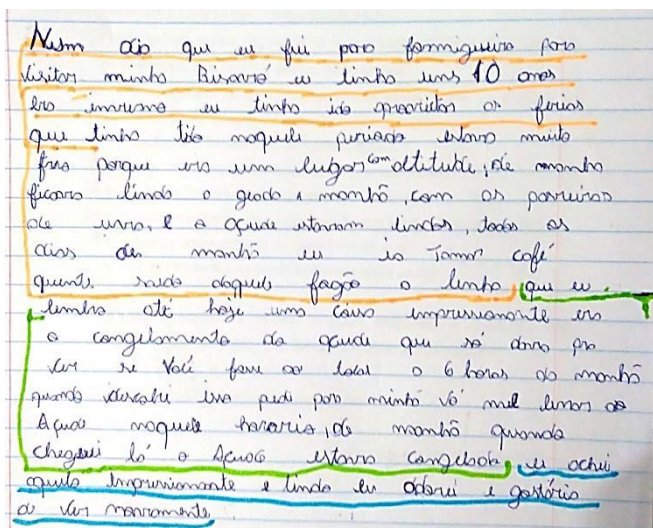 Num dia que eu fui para formigueiro para
visitar minha Bisavó eu tinha uns 10 anos
era inverno eu tinha ido aproveitar as ferias
que tinha tido naquele periado estava muito
frio porque era um lugar com altitude, de manha
ficava lindo o geada a manhã, com as parreiras
de uvas, e a açude estavam lindos, todos os
dias de manhã eu ia Tomar café
quente saido daquele fogão a lenha que eu
lembro até hoje uma coisa impressionante era
o congelamento do açude que só dava pra
ver se Você fosse ao local a 6 horas da manhã
quando descobri isso pedi para minha vó me levar ao
Açude naquele horario, de manhã quando
cheguei lá o Açude estava congelado, eu achei
aquilo impressionante e lindo eu adorei e gostária
de ver novamente.